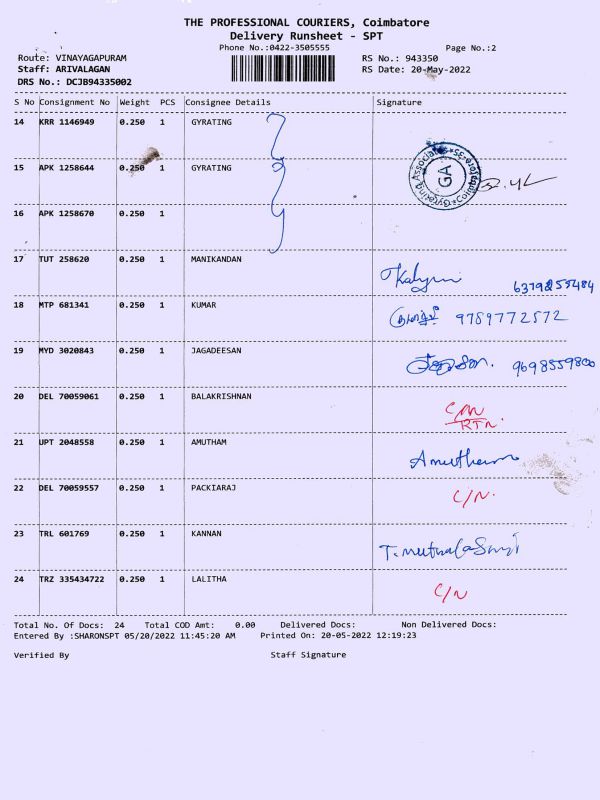 THE PROFESSIONAL COURIERS, Coimbatore
Delivery Runsheet - SPT
Phone No.:0422-3505555
Page No.:2
Route: VINAYAGAPURAM
RS No.: 943350
Staff: ARIVALAGAN
RS Date: 20-May-2022
DRS No.: DCJB94335002
S No Consignment No Weight PCS Consignee Details Signature
14 KRR 1146949 0.250 1 GYRATING
15 APK 1258644 0.250 1 GYRATING
GA
16 APK 1258670 0.250 1
17 TUT 258620 0.250 1 MANIKANDAN
18 MTP 681341 0.250 1 KUMAR
9789772572
19 MYD 3020843 0.250 1 JAGADEESAN
9698559800
20 DEL 70059061 0.250 1 BALAKRISHNAN
RTN.
21 UPT 2048558 0.250 1 AMUTHAM
22 DEL 70059557 0.250 1 PACKIARAJ
C/N.
23 TRL 601769 0.250 1 KANNAN
24 TRZ 335434722 0.250 1 LALITHA
C/N
Total No. Of Docs: 24 Total COD Amt: 0.00 Delivered Docs: Non Delivered Docs:
Entered By :SHARONSPT 05/20/2022 11:45:20 AM Printed On: 20-05-2022 12:19:23
Verified By Staff Signature